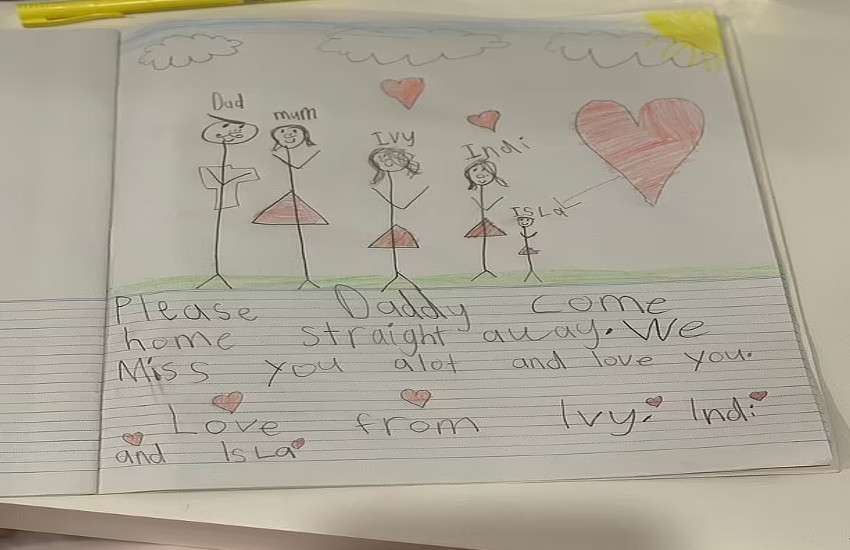 Dad
mum
Ivy
Indi
ISLa
Please Daddy come
home straight away. We
Miss you alot and love you.
Love from Ivy. Indi
and IsLa